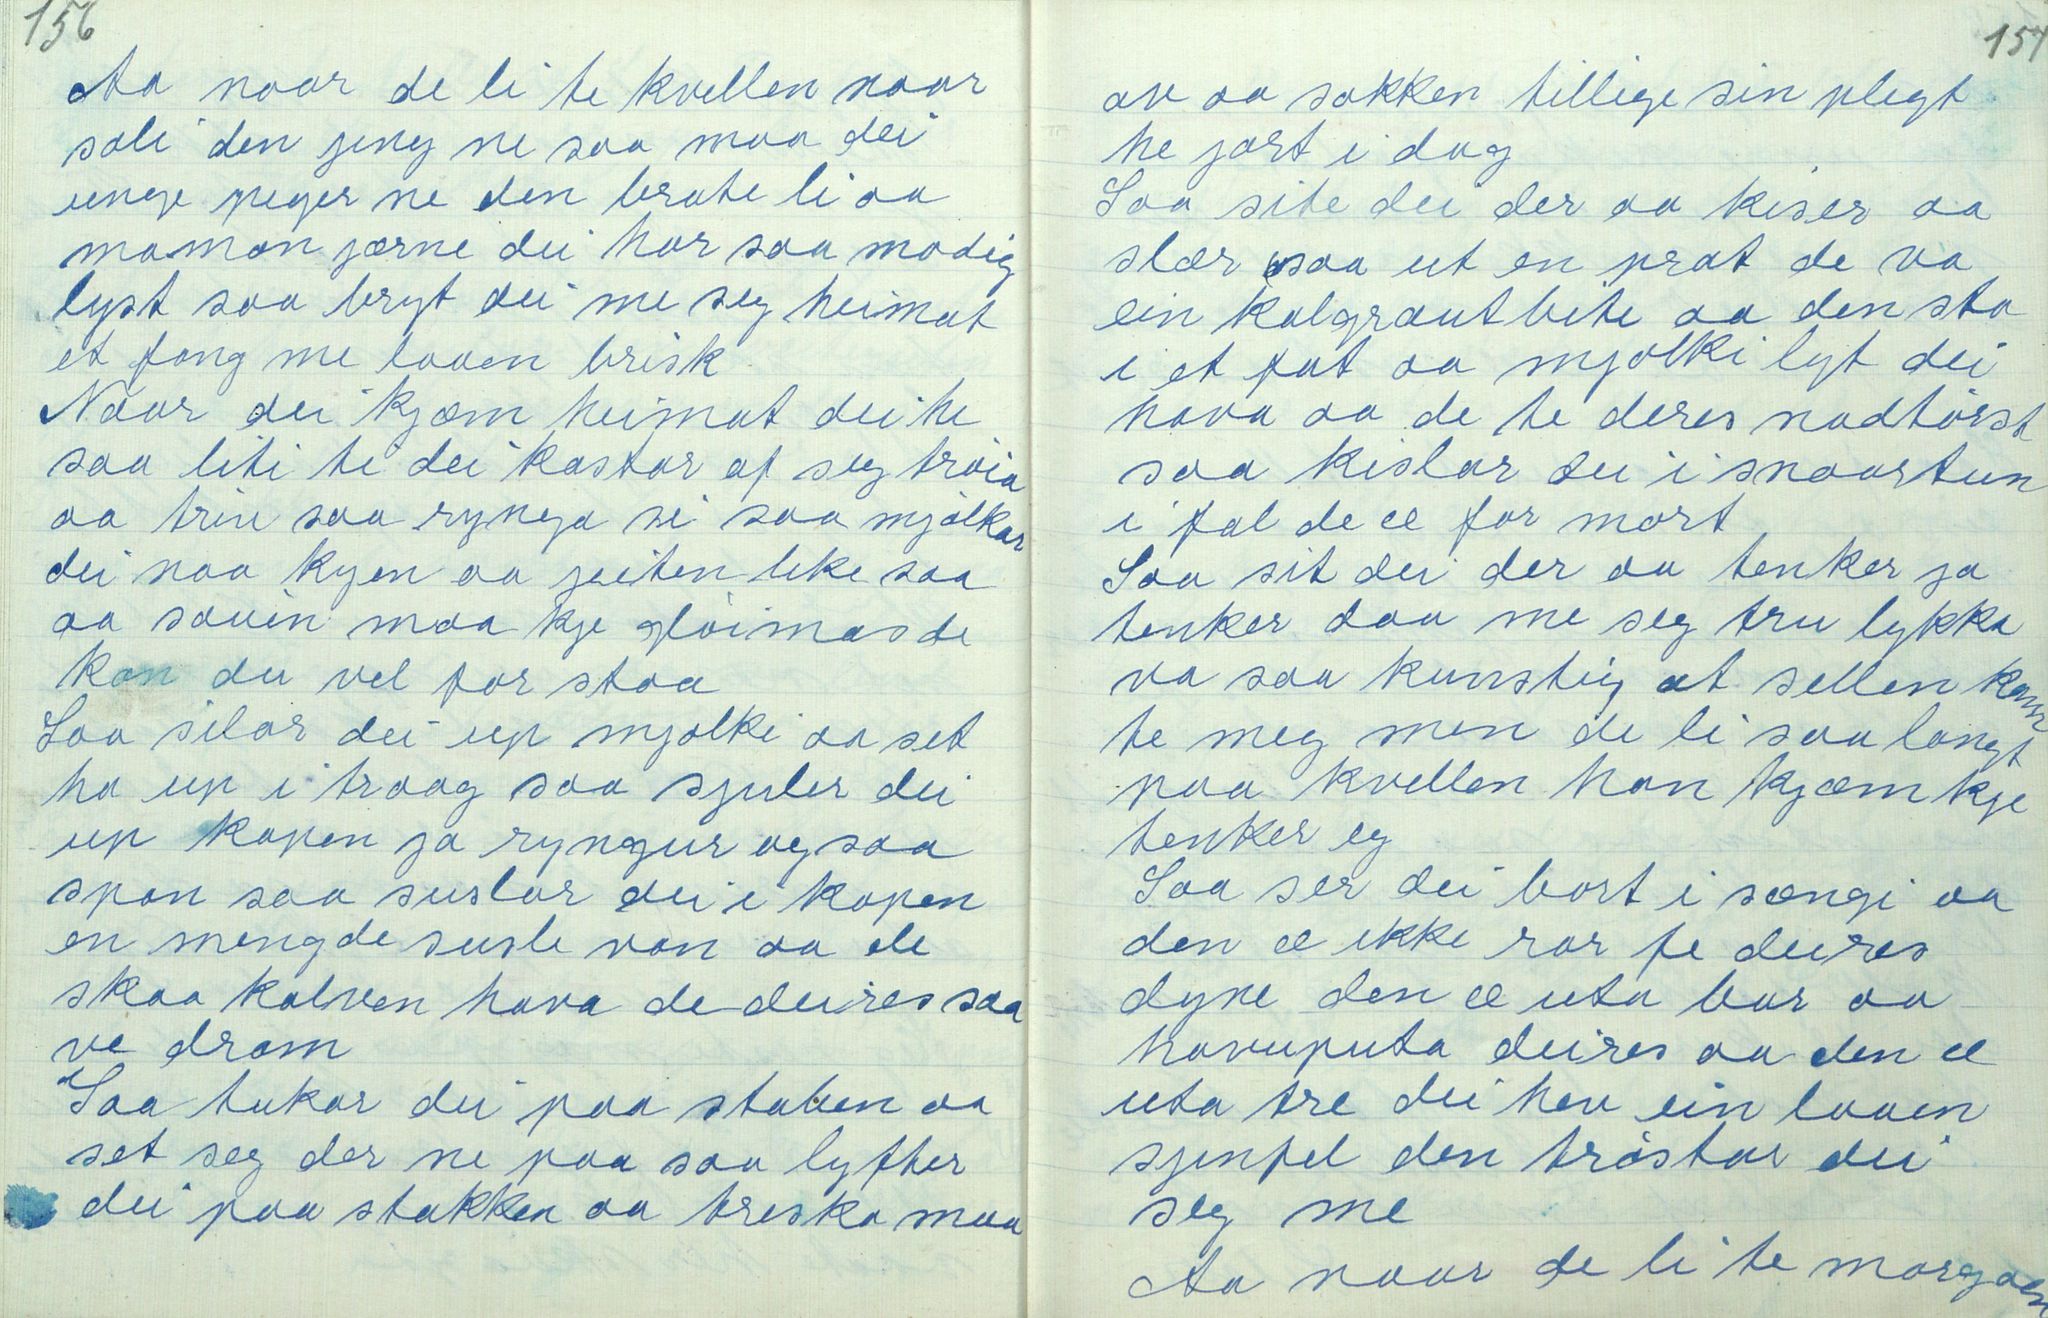 156
Aa naar de li te kvellen naar
soli den jeng ne saa maa dei
unge peger ne den brate li aa
maman jærne dei har saa modig
lyst saa bryt dei me seg heimat
et fang me loven brisk
Naar dei kjæm heimat dei he
saa liti ti dei kastar af seg tröia
aa triu saa rynga si saa mjölkar
dei naa kyen aa jeiten like saa
aa sauin maa kje glöimas de
kan du vel for staa
Saa silar dei up mjolki aa set
ha up i traag saa sjuler dei
up kapen ja ryngur og saa
span saa suslar dei i kapen
en mengde susle van aa de
skaa kalven hava de deires saa
ve dram
Saa tukar dei paa staven aa
set seg der ne paa saa lyfter
dei paa stakken aa treska maa
157
av aa sakken tillige sin plegt
he jort i dag
Saa site dei der aa kiser aa
slær saa ut en prat de va
ein kalgraut bite aa den sta
i et fat aa mjolki lyt dei
hava aa de te deres nadtörst
saa kislar dei i snaartun
i fal de æ for mort
Saa sit dei der aa tenker ja
tenker daa me seg tru lykka
va saa kunstig at sellen kam
te meg men de li saa langt
paa kvellen han kjæm kje
tenker eg
Saa ser dei bort i sængi aa
den æ ikke rar fe deires
dyne den æ uta bar aa
havuputa deires aa den æ
uta tre dei hev ein loven
sjenfel den tröstar dei
seg me
Aa naar de li te morgoen